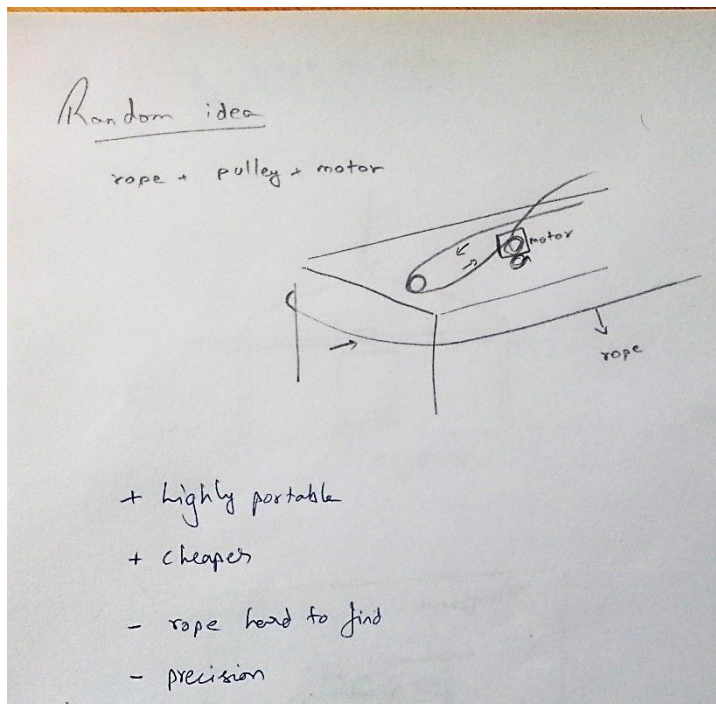 Random idea
rope + pulley + motor
motor
rope
+ highly portable
+ cheaper
- rope hard to find
- precision